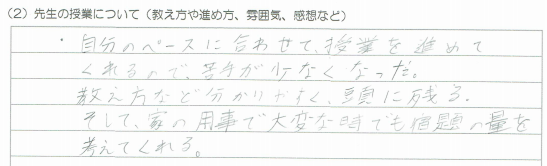 (2) 先生の授業について（教え方や進め方、雰囲気、感想など）
・自分のペースに合わせて、授業を進めて
くれるので、苦手が少なくなった。
教え方など分かりやすく、頭に残る。
そして、家の用事で大変な時でも宿題の量を
考えてくれる。